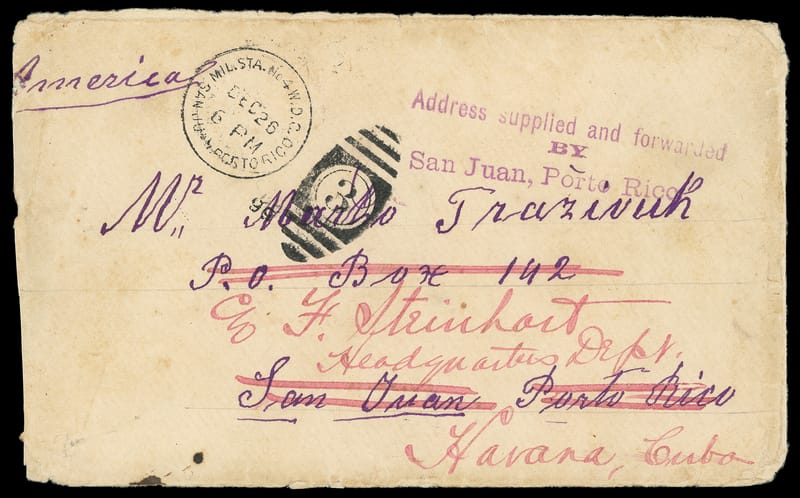 America
SAN JUAN MIL. STA. No 4 W. D. C.
PORTO RICO
DEC 26
6 PM
98
3
Address supplied and forwarded
BY
San Juan, Porto Rico
Mr Marko Trazivuk
P.o. Box 142
c/o F. Steinhart
Headquarters Dept.
San Juan Porto Rico
Havana, Cuba